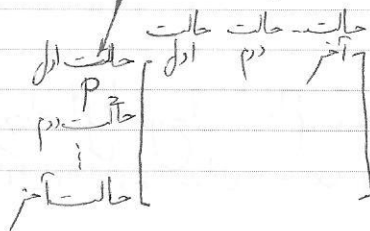 حالت اول حالت دوم حالت آخر
حالت اول
P
2
حالت دوم
⋮
حالت آخر